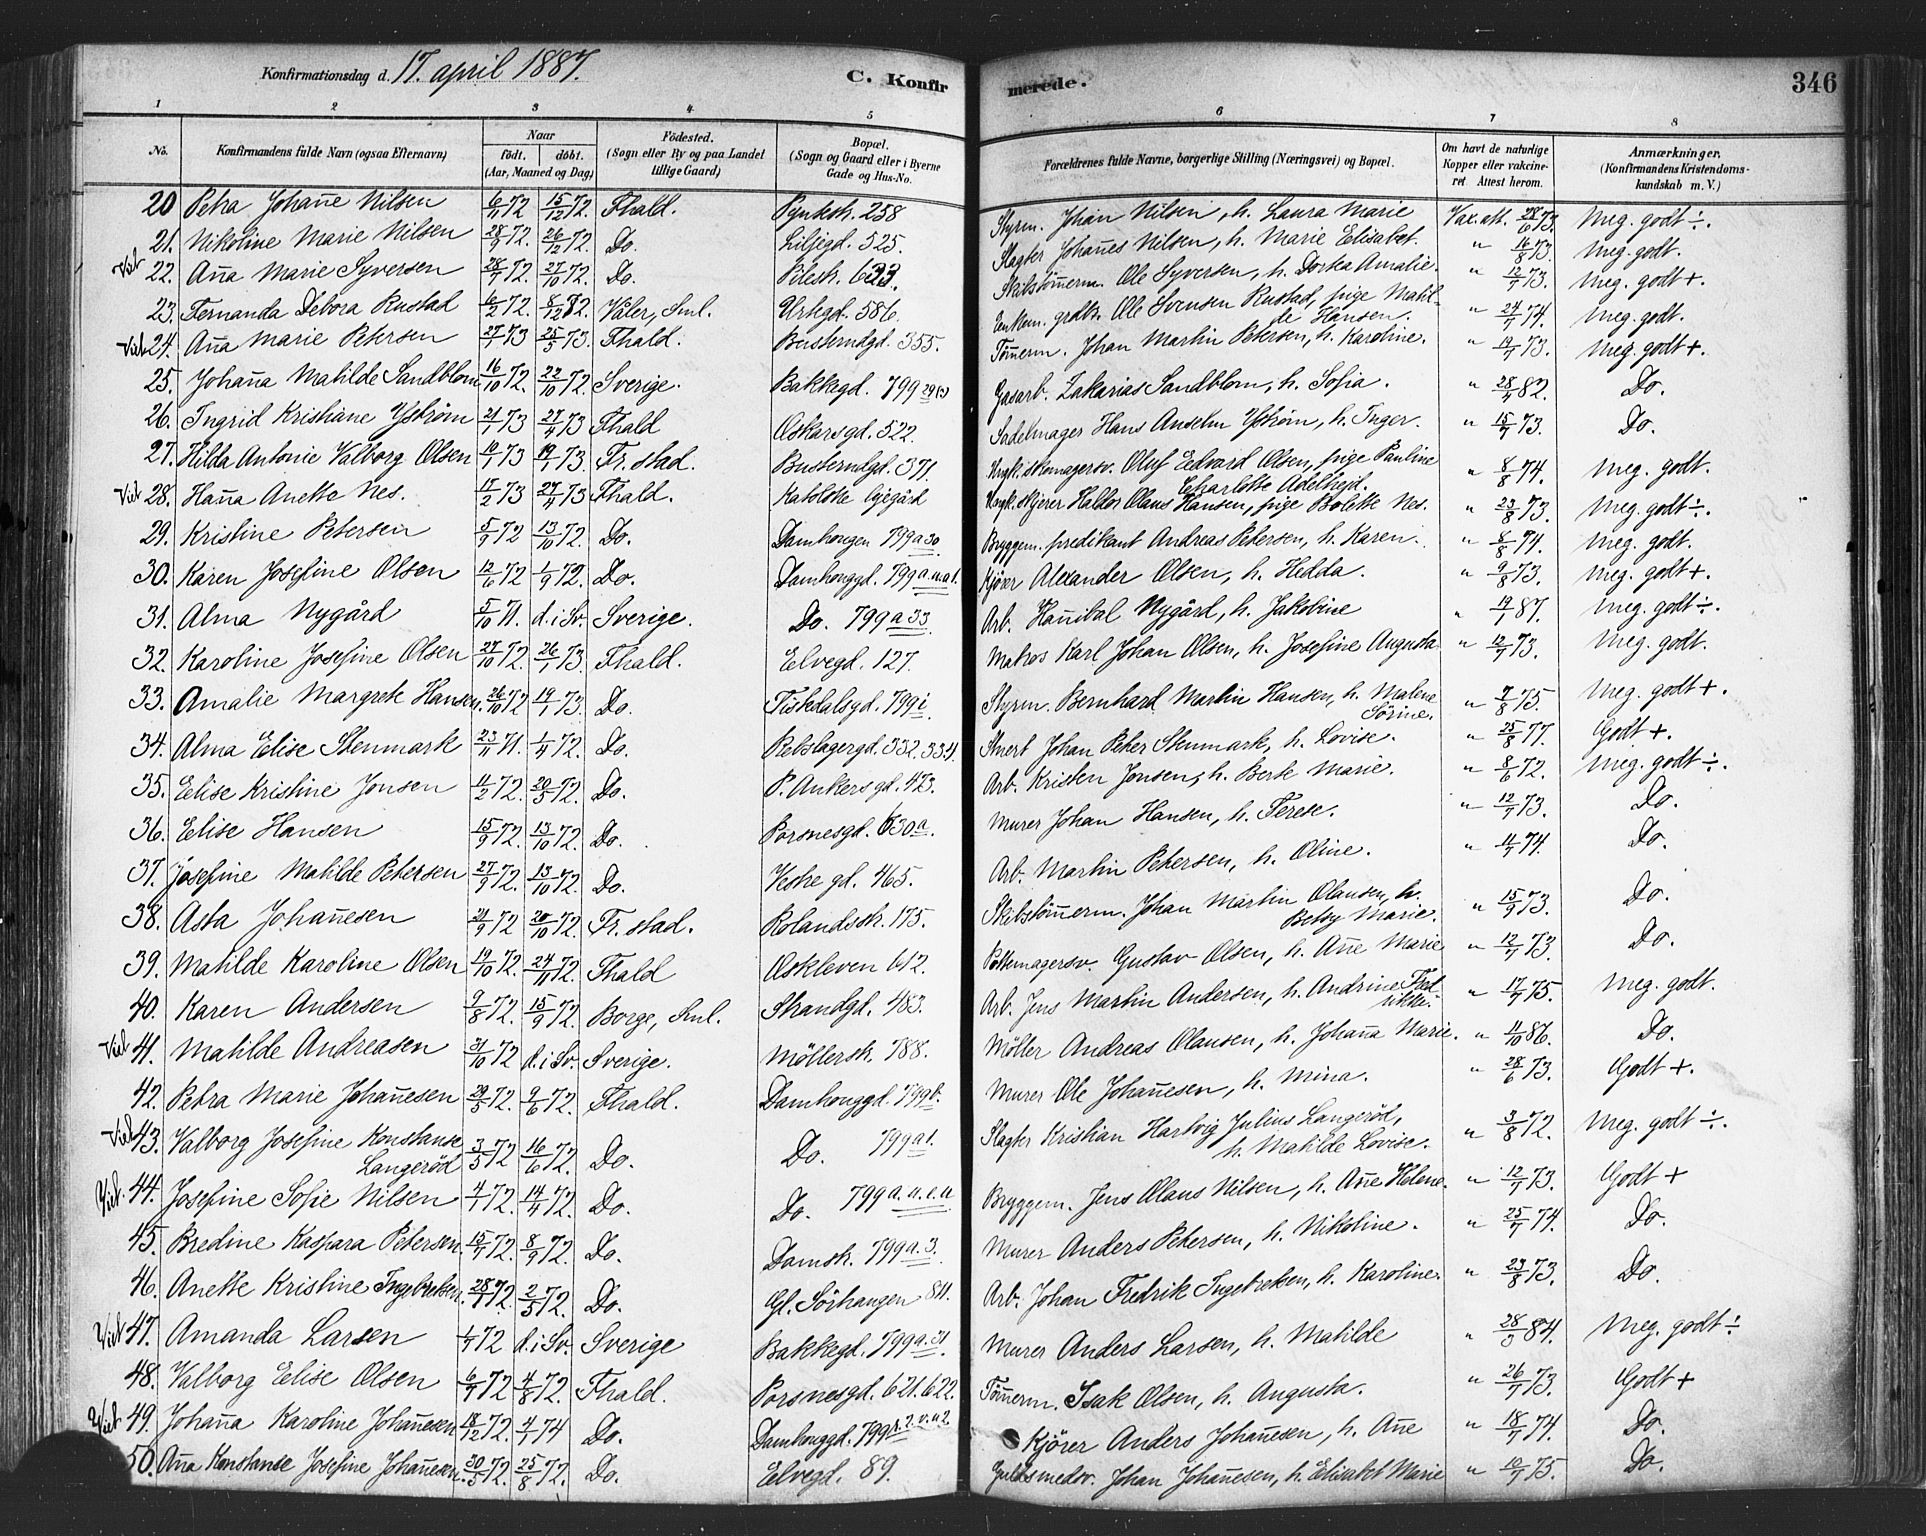 Konfirmationsdag d. 17. april 1887.
C. Konfirmerede.
346
1 2 3 4 5 6 7 8
No.
Konfirmandens fulde Navn (ogsaa Efternavn)
Naar
født. døbt.
(Aar, Maaned og Dag)
Födested.
(Sogn eller By og paa Landet
tillige Gaard)
Bopæl.
(Sogn og Gaard eller i Byerne
Gade og Hus-No.
Forældrenes fulde Navne, borgerlige Stilling (Næringsvei) og Bopæl.
Om havt de naturlige
Kopper eller vakcine-
ret. Attest herom.
Anmærkninger.
(Konfirmandens Kristendoms-
kundskab m. V.)
20 Petra Johan̄e Nilsen 6/11 72 15/12 72. Fhald. 258 Styrm. Johan Nilsen, h. Laura Marie Vax. att. 28/6 73. Meg. godt ÷.
21. Nikoline Marie Nilsen 28/9 72. 26/12 72. Do. Liljegd. 525. Slagter Johan̄es Nilsen, h. Marie Elisabet. " 16/8 73. Meg. godt.
Viet 22. An̄a Marie Syversen 28/7 72. 27/10 72. Do. Pilestr. 633. Skibstøm̄erm. Ole Syversen, h. Dorka Amalie. " 12/7 73. Meg. godt +.
23. Fernanda Debora Rustad 16/2 72. 8/12 82. Våler, Sml. Urkgd. 586. Enkem. grdbr. Ole Svensen Rustad, pige Matil-
de Hansen. " 24/7 74. Meg. godt.
Viet 24. An̄a Marie Petersen 27/1 73 25/5 73. Fhald. Busterudgd. 355. Tøm̄erm. Johan Martin Petersen, h. Karoline. " 19/7 73. Meg. godt +.
25. Johan̄a Matilde Sandblom 16/10 72. 22/10 72. Sverige. Bakkegd. 799 Gasarb. Zakarias Sandblom, h. Sofia. " 28/4 82. Do.
26. Ingrid Kristiane Ystrøm 21/1 73 27/4 73 Fhald Oskarsgd. 522. Sadelmager Hans Anselm Ystrøm, h. Inger. " 15/7 73. Do.
27. Hilda Antonie Valborg Olsen 10/1 73 19/1 73. Fr. stad. Busterudgd. 371. Ungk. skomagersv. Oluf Edvard Olsen, pige Pauline
Charlotte Adelheid. " 8/8 74. Meg. godt.
Viet 28. Han̄a Anette Nes. 17/2 73 27/4 73 Fhald. Katolske Ungk. skjører Haldor Olaus Hansen, pige Bolette Nes. " 23/8 73. Meg. godt ÷.
29. Kristine Petersen 5/9 72 13/10 72. Do. Damhougen 799 a 30 Bryggem. predikant Andreas Petersen, h. Karen. " 8/8 74. Meg. godt.
30. Karen Josefine Olsen 12/6 72 1/9 72. Do. Damhouggd. 799 Kjører Alexander Olsen, h. Hedda. " 9/8 73. Meg. godt +.
31. Alma Nygård 5/10 71. d. i Sv. Sverige. Do. 799 a 33 Arb. Han̄ibal Nygård, h. Jakobine " 19/1 87. Meg. godt ÷.
32. Karoline Josefine Olsen 27/10 72. 26/1 73. Fhald. Elvegd. 127. Matros Karl Johan Olsen, h. Josefine Augusta " 12/7 73. Meg. godt.
33. Amalie Margrete Hansen. 26/10 72 19/1 73. Do. Fiskdalsgd. 799 i Styrm. Bernhard Martin Hansen, h. Malene
Sørine. " 7/8 75. Meg. godt +.
34. Alma Elise Stenmark 23/11 71. 1/4 72. Do. Rebslagergd. 332. 334. Stuert Johan Peter Stenmark, h. Lovise. " 25/8 77. Godt +.
35. Elise Kristine Jonsen 11/2 72. 20/5 72. Do. P. Ankersgd. 473. Arb. Kristen Jonsen, h. Berte Marie. " 8/6 72. Meg. godt ÷.
36. Elise Hansen 15/9 72. 13/10 72. Do. Porsnesgd. 630 a. Murer Johan Hansen, h. Terese. " 12/7 73. Do.
37. Josefine Matilde Petersen 27/9 72. 13/10 72. Do. Vestre gd. 465. Arb. Martin Petersen, h. Oline. " 11/7 74. Do.
38. Asta Johan̄esen 21/9 72 20/10 72. Fr. stad. Rolandsstr. 175. Skibstøm̄erm. Johan Martin Olausen, h.
Betsy Marie. " 15/9 73. Do.
39. Matilde Karoline Olsen 19/10 72. 24/11 72. Fhald Oskleven 612. Pottemagersv. Gustav Olsen, h. An̄e Marie " 12/7 73. Do.
40. Karen Andersen 9/8 72. 15/9 72. Borge, Sml. Strandgd. 483. Arb. Jens Martin Andersen, h. Andrine Fred-
rikke. " 17/7 75. Meg. godt.
Viet 41. Matilde Andreasen 31/10 72 d. i Sv. Sverige. Möllerstr. 788. Möller Andreas Olausen, h. Johan̄a Marie. " 11/10 86. Do.
42. Petra Marie Johan̄esen 20/5 72. 9/6 72. Fhald. Damhouggd. 799 b. Murer Ole Johan̄esen, h. Mina. " 28/6 73. Godt +.
Viet 43. Valborg Josefine Konstanse
Langerød 3/5 72 16/6 72. Do. Do. 799 a 1. Slagter Kristian Hartvig Julius Langerød,
h. Matilde Lovise. " 3/8 72. Meg. godt ÷.
Viet. 44. Josefine Sofie Nilsen 4/1 72. 14/4 72. Do. Do. 799 Bryggem. Jens Olaus Nilsen, h. An̄e Helene. " 12/7 73. Godt +
45. Bredine Kaspara Petersen 15/7 72. 8/9 72. Do. Damstr. 799 a. 3. Murer Anders Petersen, h. Nikoline. " 25/7 74. Do.
46. Anette Kristine Ingebretsen. 28/1 72. 2/5 72. Do. Gl. Sörhaugen 811. Arb. Johan Fredrik Ingebretsen, h. Karoline. " 23/8 73. Do.
Viet 47. Amanda Larsen 1/7 72 d. i Sv. Sverige Bakkegd. 799 a. 31 Murer Anders Larsen, h. Matilde " 28/3 84. Meg. godt ÷
48. Valborg Elise Olsen 6/7 72 4/8 72. Fhald. Porsnesgd. 621. 622. Tøm̄erm. Isak Olsen, h. Augusta. " 26/7 73. Godt +
Viet 49. Johan̄a Karoline Johan̄esen 18/12 72. 4/1 74 Do. Damhouggd. 799 Kjører Anders Johan̄esen, h. An̄e " 18/7 74. Do.
50. An̄a Konstanse Josefine Johan̄esen. 20/5 72. 25/8 72. Do. Elvegd. 89. Guldsmedsv. Johan Johan̄esen, h. Elisabet Marie " 10/7 75. Do.